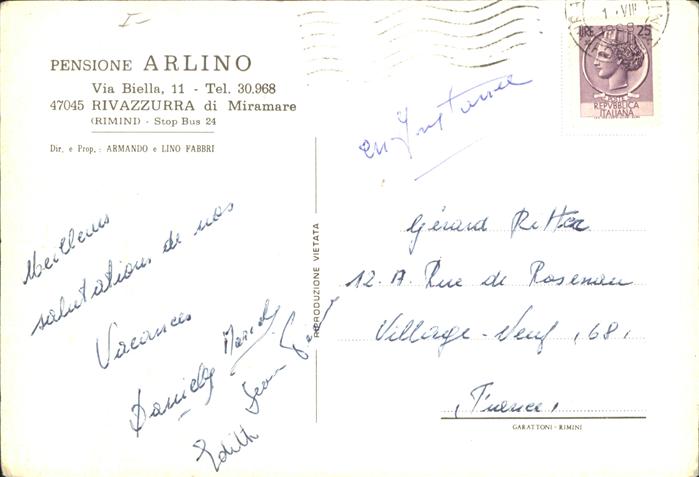 I-
PENSIONE ARLINO
Via Biella, 11 - Tel. 30.968
47045 RIVAZZURRA di Miramare
(RIMINI) - Stop Bus 24
Dir. e Prop.: ARMANDO e LINO FABBRI
Meilleurs
salutations de nos
Vacances
Edith Jean
RIPRODUZIONE VIETATA
LIRE 25
POSTE
REPVBBLICA
ITALIANA
1 VIII
Gérard
12.A. Rue de Rosenau
Village-Neuf (68)
(France)
GARATTONI - RIMINI